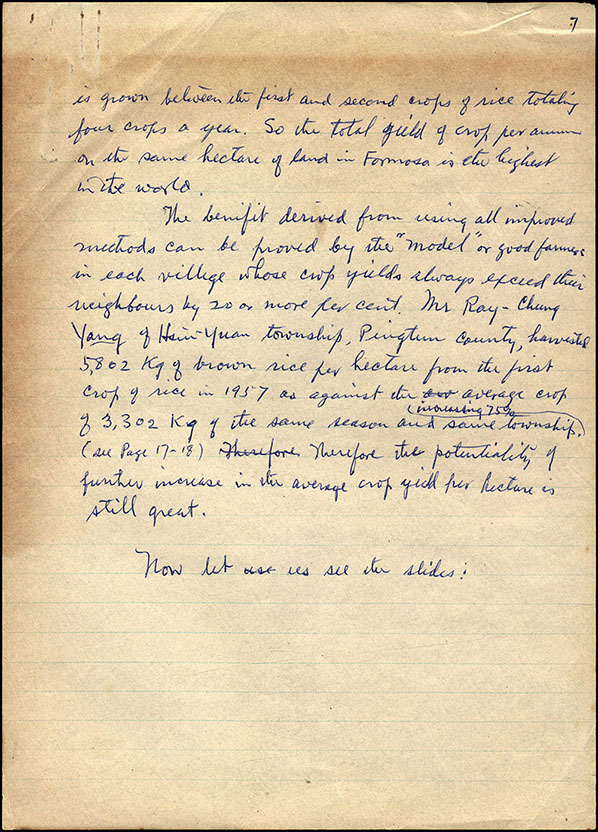 7
is grown between the first and second crops of rice totaling
four crops a year. So the total yield of crop per annum
on the same hectare of land in Formosa is the highest
in the world.
The benifit derived from using all improved
methods can be proved by the "model" or good farmers
in each village whose crop yields always exceed their
neighbours by 20 or more per cent. Mr Ray-Chung
Yang of Hsin-Yuan township, Pingtun County, harvested
5,802 Kg of brown rice per hectare from the first
crop of rice in 1957 as against the average crop
(increasing 75%)
of 3,302 Kg of the same season and same township.
(see Page 17-18) Therefore Therefore the potentiality of
further increase in the average crop yield per hectare is
still great.
Now let use us see the slides: